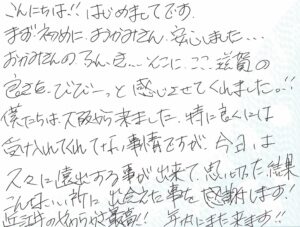 こんにちは!! はじめましてです。
まず初めに おかみさん、安心しました…
おかみさんの …そこに ここ、滋賀の
良さを、びびーっと 感じさせてくれました。!!
僕たちは大阪から来ました。特に良くには
受け入れてくれてない事情ですが、今日は
久々に遠出する事が出来て、思い切った結果
こんないい所に 出会えた事を 感謝します!
近江牛のやわらかさ最高!! 年内にまた来ます!!